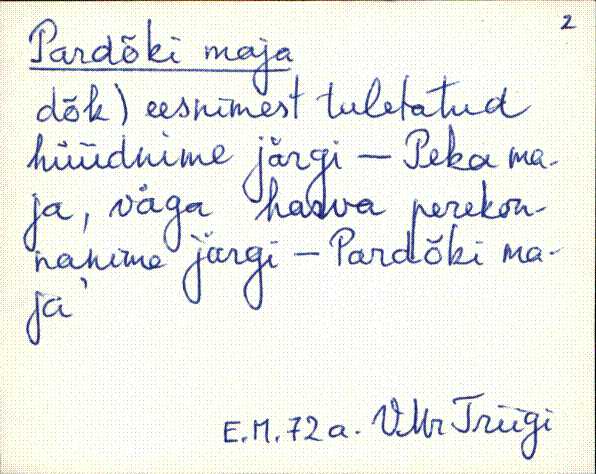 2
Pardõki maja
dõk) eesnimest tuletatud
hüüdnime järgi — Peka ma-
ja, väga harva perekon-
nanime järgi — Pardõki ma-
ja'
E.M. 72 a. VMr Triigi